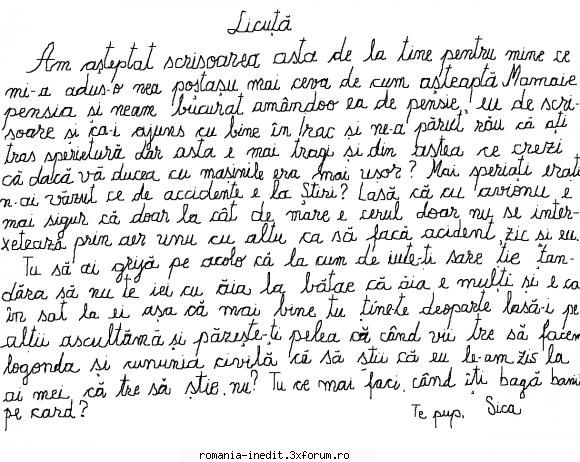 Licuță
Am așteptat scrisoarea asta de la tine pentru mine ce
mi-a adus-o nea poștașu mai ceva de cum așteaptă Mamaie
pensia si neam bucurat amândoo ea de pensie, eu de scri-
soare și ca-i ajuns cu bine în Irac și ne-a părut rău că ați
tras sperietură dar asta e mai tragi și din astea ce crezi
că dacă vă ducea cu masinile era mai usor? Mai speriați erați
n-ai văzut ce de accidente e la Știri? Lasă că cu avionu e
mai sigur că doar la cât de mare e cerul doar nu se inter-
xetează prin aer unu cu altu ca să facă acident, zic si eu.
Tu să ai grijă pe acolo că la cum de iute-ti sare ție țan-
dăra să nu te iei cu ăia la bătae că ăia e mulți si e ca
în sat la ei așa că mai bine tu ține-te deoparte lasă-i pe
altii ascultămă și păzește-ți pelea că când vii tre să facem
logonda și cununia civilă că să știi că eu le-am zis la
ai mei, că tre să știe, nu? Tu ce mai faci, când îți bagă bani
pe card?
Te pup, Sica
romania-inedit.3xforum.ro